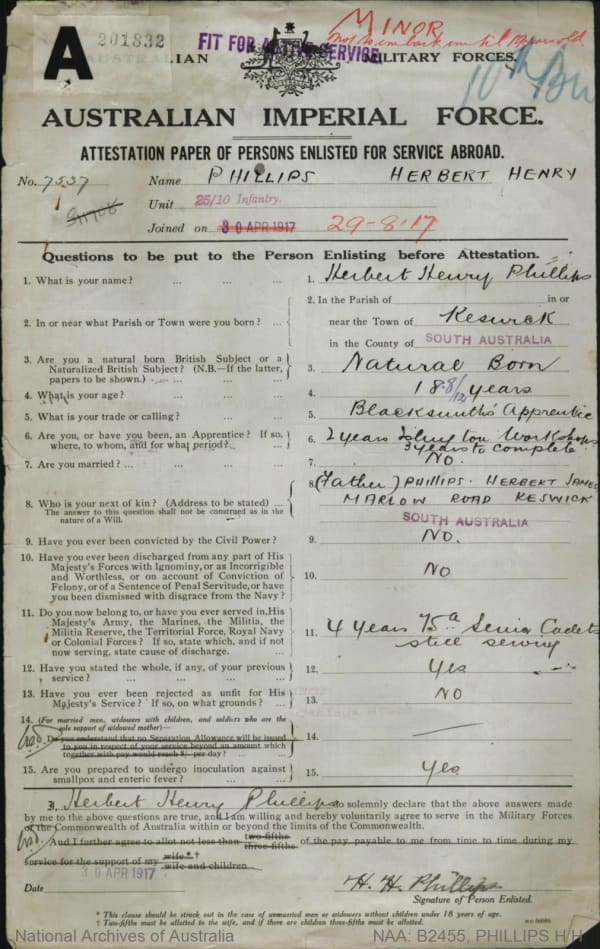 A 201832
FIT FOR ACTIVE SERVICE
MINOR
not to embark until 19 years old
10th Bn
AUSTRALIAN MILITARY FORCES.
AUSTRALIAN IMPERIAL FORCE.
ATTESTATION PAPER OF PERSONS ENLISTED FOR SERVICE ABROAD.
No. 7537 Name PHILLIPS HERBERT HENRY
Unit 25/10 Infantry.
Joined on 30 APR 1917 29-8-17
Questions to be put to the Person Enlisting before Attestation.
1. What is your name? ... ... ... 1. Herbert Henry Phillips
2. In or near what Parish or Town were you born? ... 2. In the Parish of in or
near the Town of Keswick
in the County of SOUTH AUSTRALIA
3. Are you a natural born British Subject or a
Naturalized British Subject? (N.B.—If the latter,
papers to be shown.) 3. Natural Born
4. What is your age? ... ... 4. 18 8/12 years
5. What is your trade or calling? ... ... 5. Blacksmiths Apprentice
6. Are you, or have you been, an Apprentice? If so,
where, to whom, and for what period? 6. 2 years Islington Workshops
3 years to complete
7. Are you married? ... ... ... ... 7. NO.
8. Who is your next of kin? (Address to be stated) ...
The answer to this question shall not be construed as in the
nature of a Will.
8. (Father) PHILLIPS. HERBERT JAMES
MARLOW ROAD KESWICK
SOUTH AUSTRALIA
9. Have you ever been convicted by the Civil Power? 9. NO.
10. Have you ever been discharged from any part of His
Majesty's Forces with Ignominy, or as Incorrigible
and Worthless, or on account of Conviction of
Felony, or of a Sentence of Penal Servitude, or have
you been dismissed with disgrace from the Navy? 10. NO
11. Do you now belong to, or have you ever served in, His
Majesty's Army, the Marines, the Militia, the
Militia Reserve, the Territorial Force, Royal Navy
or Colonial Forces? If so, state which, and if not
now serving, state cause of discharge. 11. 4 years 75a Senior Cadets
still serving
12. Have you stated the whole, if any, of your previous
service? ... ... ... ... 12. Yes
13. Have you ever been rejected as unfit for His
Majesty's Service? If so, on what grounds? ... 13. NO
14. (For married men, widowers with children, and soldiers who are the
sole support of widowed mother)—
Do you understand that no Separation Allowance will be issued
to you in respect of your service beyond an amount which
together with pay would reach 8/- per day? ... ... 14. —
15. Are you prepared to undergo inoculation against
smallpox and enteric fever? ... ... 15. Yes
I, Herbert Henry Phillips do solemnly declare that the above answers made
by me to the above questions are true, and I am willing and hereby voluntarily agree to serve in the Military Forces
of the Commonwealth of Australia within or beyond the limits of the Commonwealth.
And I further agree to allot not less than two-fifths three-fifths of the pay payable to me from time to time during my
service for the support of my wife*† wife and children
Date 30 APR 1917 H. H. Phillips
Signature of Person Enlisted.
* This clause should be struck out in the case of unmarried men or widowers without children under 18 years of age.
† Two-fifths must be allotted to the wife, and if there are children three-fifths must be allotted.
National Archives of Australia NAA: B2455, PHILLIPS H H